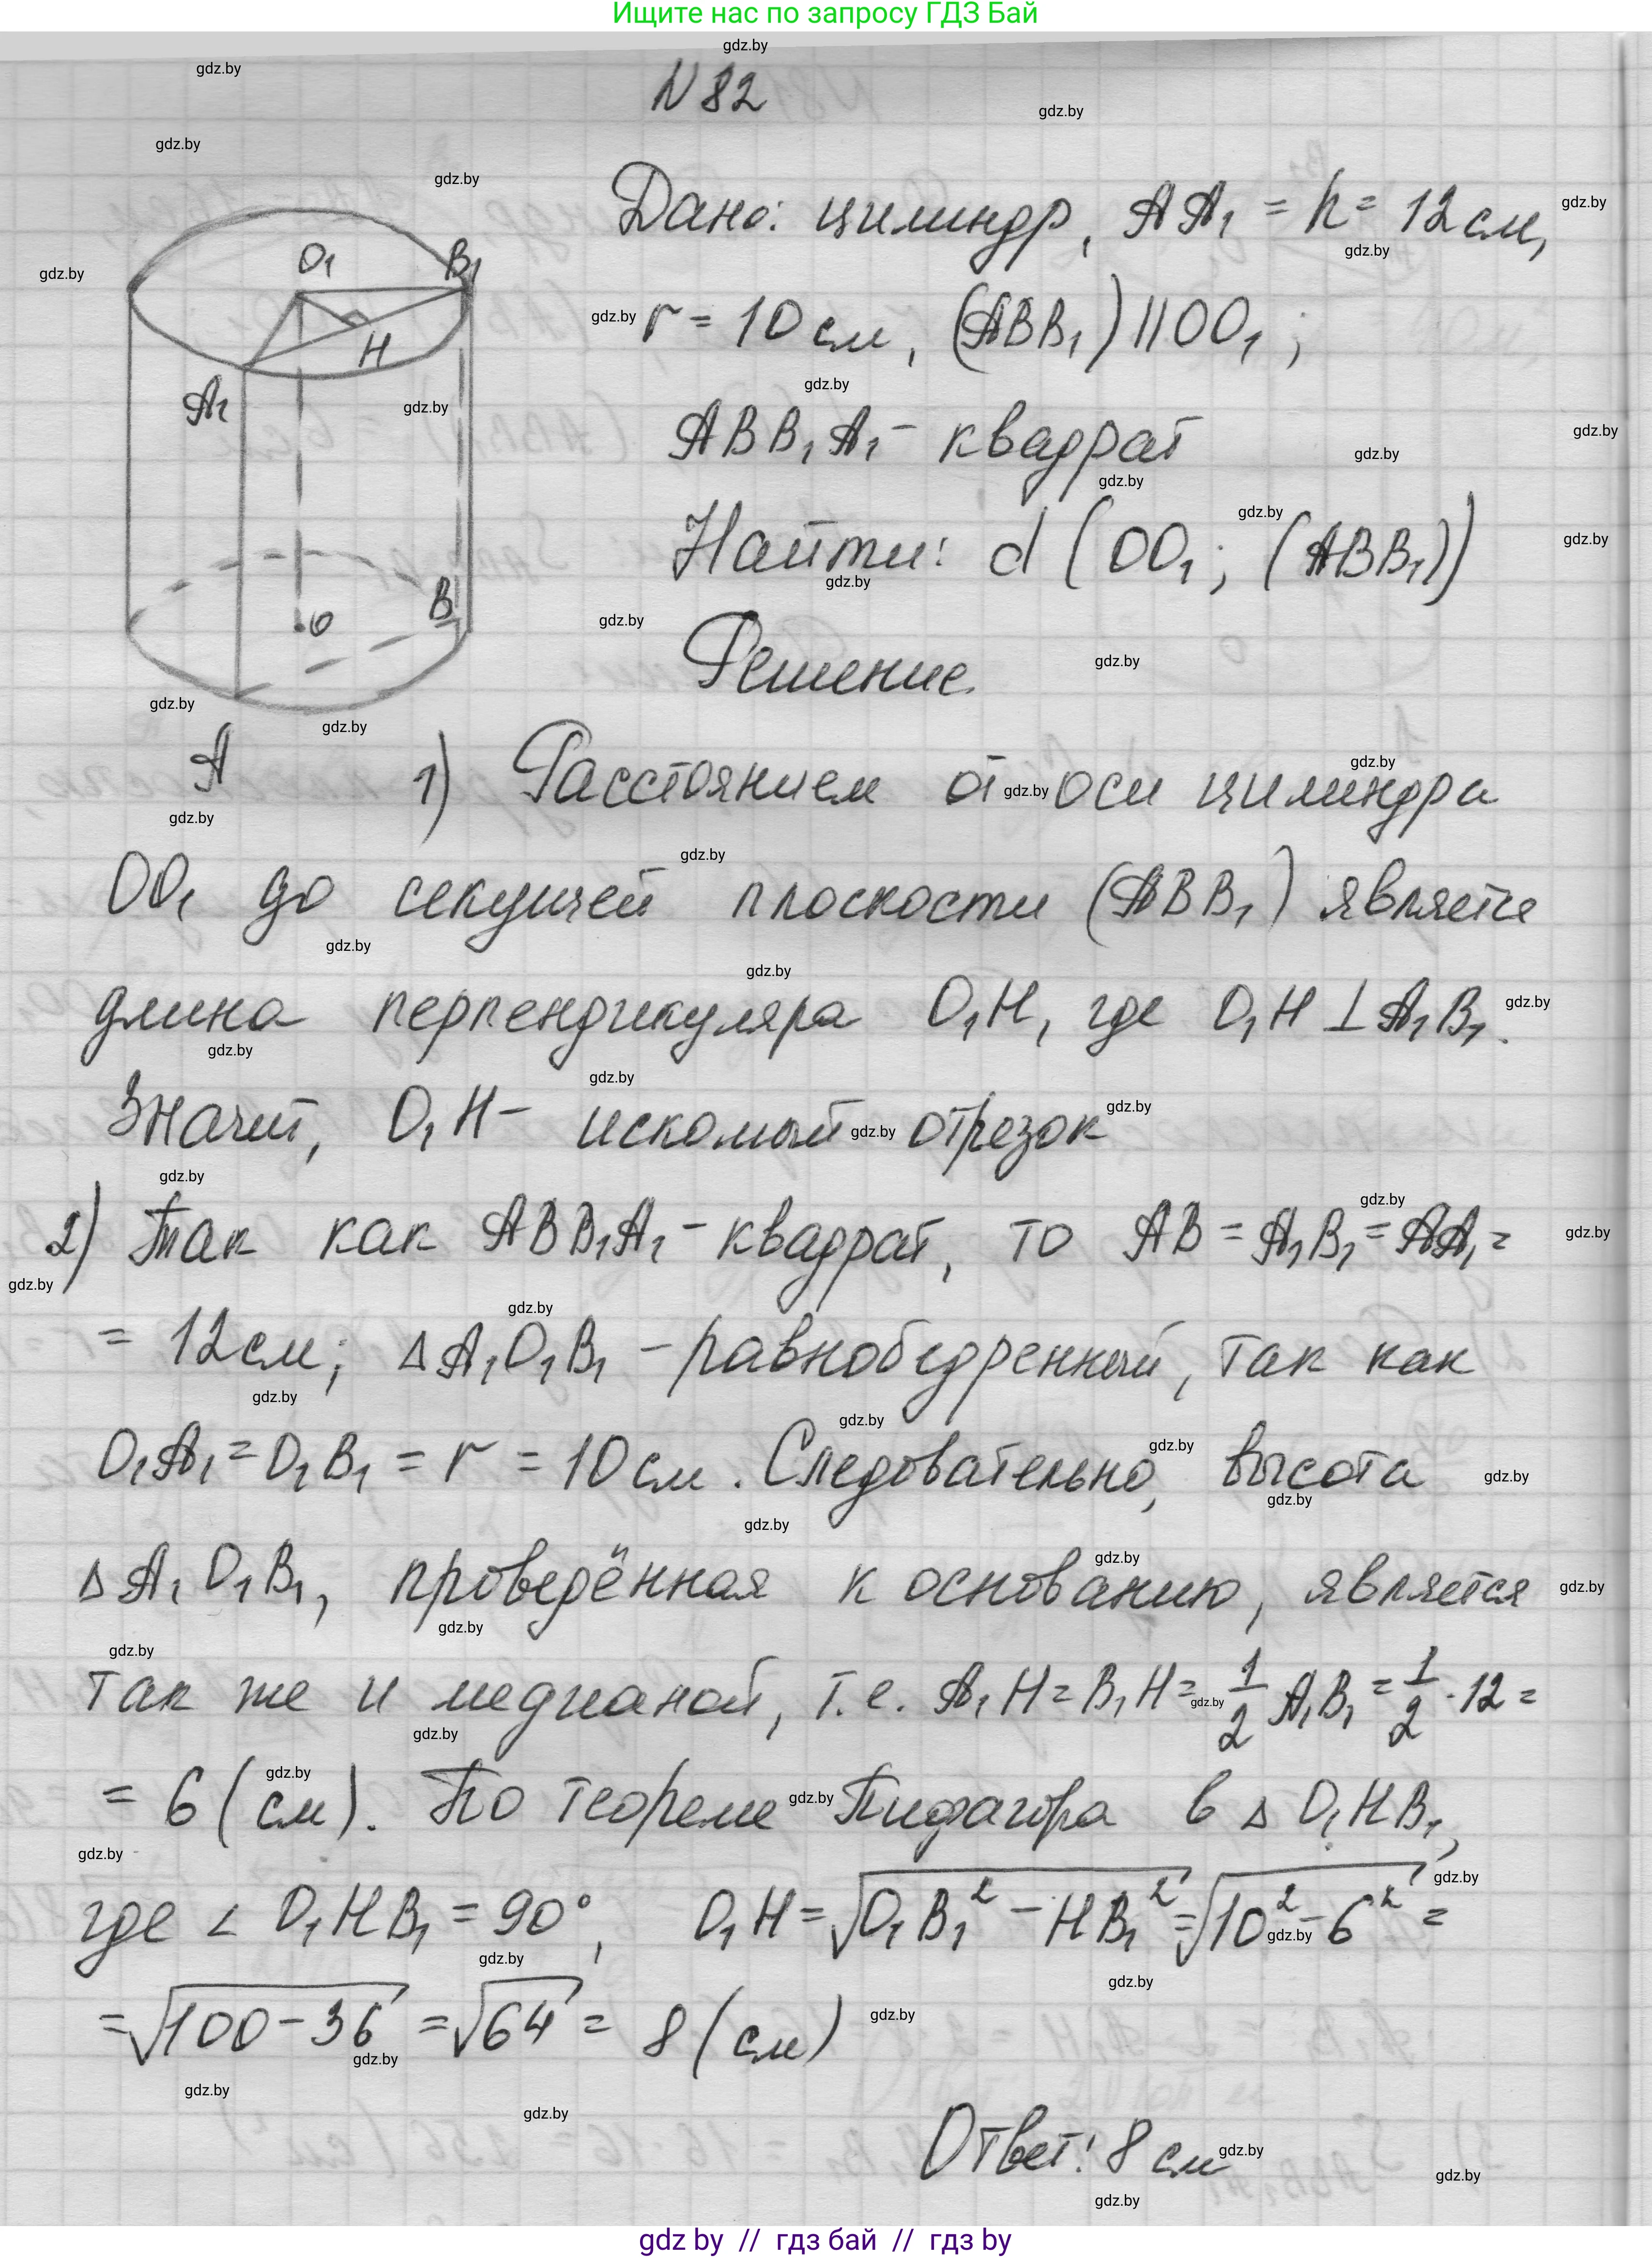 Ищите нас по запросу ГДЗ Бай
N 82
Дано: цилиндр, AA₁ = h = 12 см,
r = 10 см, (ABB₁) || OO₁;
ABB₁A₁ - квадрат
Найти: d (OO₁; (ABB₁))
Решение.
O₁
B₁
H
A₁
O
B
A
1) Расстоянием от оси цилиндра
OO₁ до секущей плоскости (ABB₁) является
длина перпендикуляра O₁H, где O₁H ⊥ A₁B₁.
Значит, O₁H - искомый отрезок
2) Так как ABB₁A₁ - квадрат, то AB = A₁B₁ = AA₁ =
= 12 см; Δ A₁O₁B₁ - равнобедренный, так как
O₁A₁ = O₁B₁ = r = 10 см. Следовательно, высота
Δ A₁O₁B₁, проведённая к основанию, является
так же и медианой, т.е. A₁H = B₁H = 1/2 A₁B₁ = 1/2 · 12 =
= 6 (см). По теореме Пифагора в Δ O₁HB₁,
где ∠ O₁HB₁ = 90°, O₁H = √(O₁B₁² - HB₁²) = √(10² - 6²) =
= √(100 - 36) = √64 = 8 (см)
Ответ: 8 см
gdz by // гдз бай // гдз by